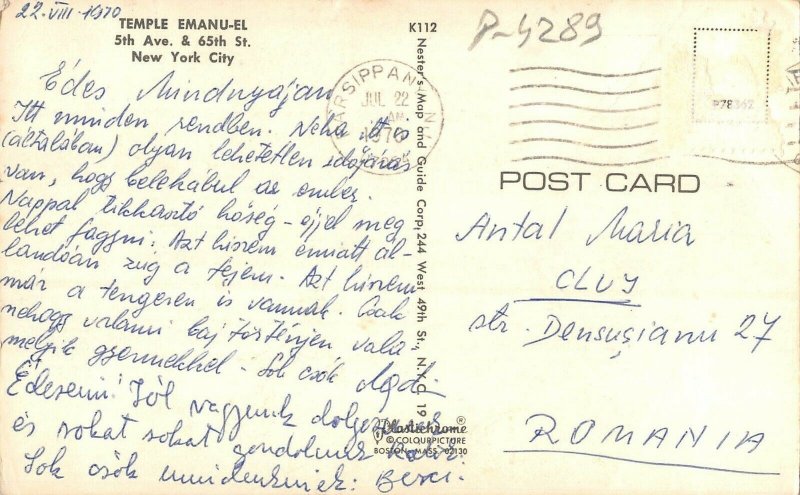 22.VIII.1970
TEMPLE EMANU-EL
5th Ave. & 65th St.
New York City
Édes Mindnyájan
Itt minden rendben. Néha itt is
(általában) olyan lehetetlen időjárás
van, hogy belekábul az ember.
Nappal tikkasztó hőség - éjjel meg
lehet fagyni. Azt hiszem emiatt ál-
landóan zúg a fejem. Azt hiszem
már a tengeren is vannak. Csak
nehogy valami baj történjen vala-
melyik gyermekkel - Sok csók
Édeseim! Jól vagyunk
és sokat sokat gondolunk
Sok csók mindenkinek: Berci.
K112
Nester's Map and Guide Corp., 244 West 49th St., N.Y.C. 19
PARSIPPANY, N.J.
JUL 22
AM
1970
P-4289
P78362
POST CARD
Antal Maria
CLUJ
str. Densuşianu 27
ROMANIA
Plastichrome®
© COLOURPICTURE
BOSTON, MASS. 02130